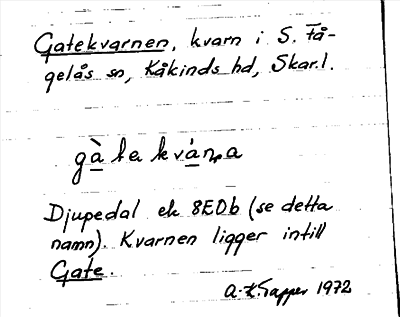 Gatekvarnen, kvarn i S. Få-
gelås sn, Kåkinds hd, Skar.l.
gàtekvána
Djupedal ek 8EDb (se detta
namn). Kvarnen ligger intill
Gate.
1972